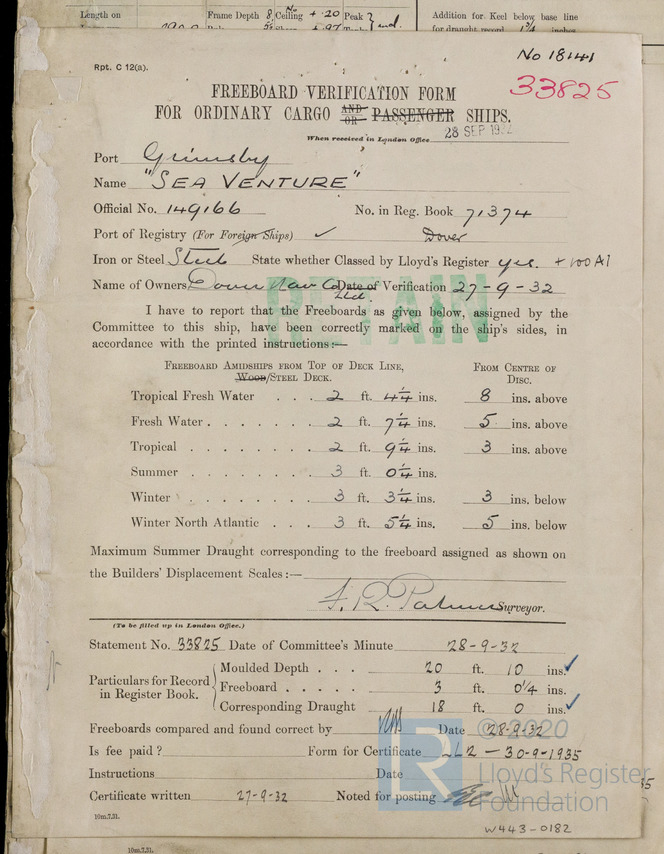 Length on
Frame Depth 8 Ceiling No + .20 Peak } and.
Addition for Keel below base line
for draught record 1¾ inches
No 18141
Rpt. C 12(a).
33825
FREEBOARD VERIFICATION FORM
FOR ORDINARY CARGO AND OR PASSENGER SHIPS.
When received in London Office 28 SEP 19
Port Grimsby
Name "SEA VENTURE"
Official No. 149166 No. in Reg. Book 71374
Port of Registry (For Foreign Ships) ✓ Dover
Iron or Steel Steel State whether Classed by Lloyd's Register yes. +100A1
Name of Owners Dover Nav Co Ltd. Date of Verification 27-9-32
RETAIN
I have to report that the Freeboards as given below, assigned by the
Committee to this ship, have been correctly marked on the ship's sides, in
accordance with the printed instructions:—
FREEBOARD AMIDSHIPS FROM TOP OF DECK LINE, FROM CENTRE OF
WOOD/STEEL DECK. DISC.
Tropical Fresh Water . . . 2 ft. 4¼ ins. 8 ins. above
Fresh Water . . . . . . . 2 ft. 7¼ ins. 5 ins. above
Tropical . . . . . . . . 2 ft. 9¼ ins. 3 ins. above
Summer . . . . . . . . 3 ft. 0¼ ins.
Winter . . . . . . . . 3 ft. 3¼ ins. 3 ins. below
Winter North Atlantic . . . 3 ft. 5¼ ins. 5 ins. below
Maximum Summer Draught corresponding to the freeboard assigned as shown on
the Builders' Displacement Scales :—
F. R. Palmer Surveyor.
(To be filled up in London Office.)
Statement No. 33825 Date of Committee's Minute 28-9-32
Particulars for Record in Register Book.
Moulded Depth . . . 20 ft. 10 ins. ✓
Freeboard . . . . . 3 ft. 0¼ ins.
Corresponding Draught 18 ft. 0 ins. ✓
Freeboards compared and found correct by Date 28-9-32
Is fee paid? Form for Certificate LL2 — 30-9-1935
Instructions Date
Certificate written 27-9-32 Noted for posting
10m.7.31.
© 2020
LR
Lloyd's Register
Foundation
W443-0182
10m.7.31.